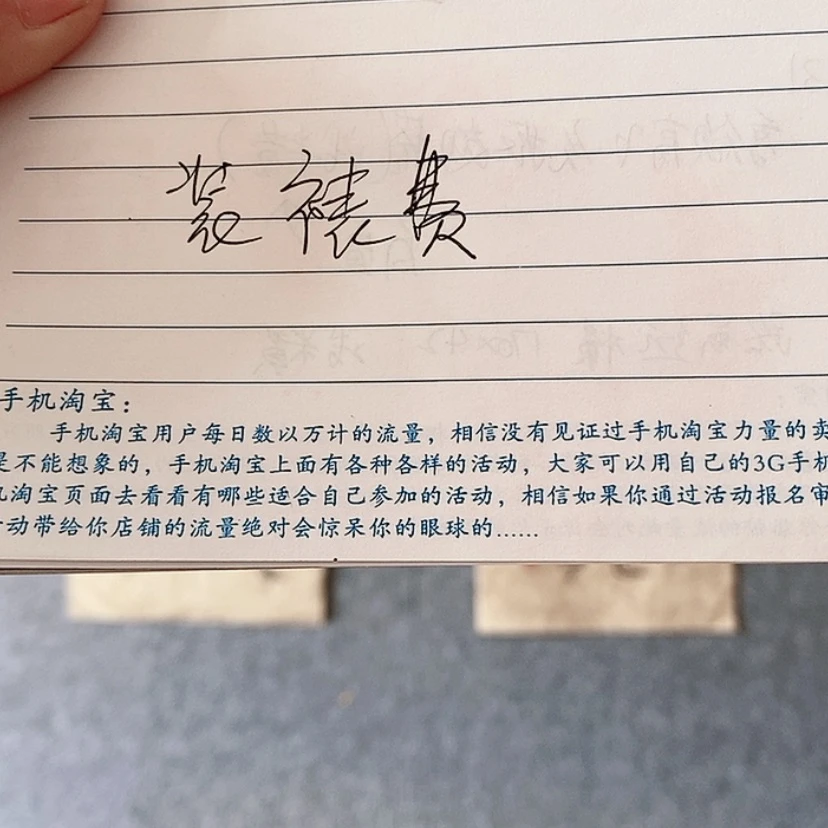 装裱费
手机淘宝:
手机淘宝用户每日数以万计的流量，相信没有见证过手机淘宝力量的卖
是不能想象的，手机淘宝上面有各种各样的活动，大家可以用自己的3G手机
机淘宝页面去看看有哪些适合自己参加的活动，相信如果你通过活动报名审
动带给你店铺的流量绝对会惊呆你的眼球的......